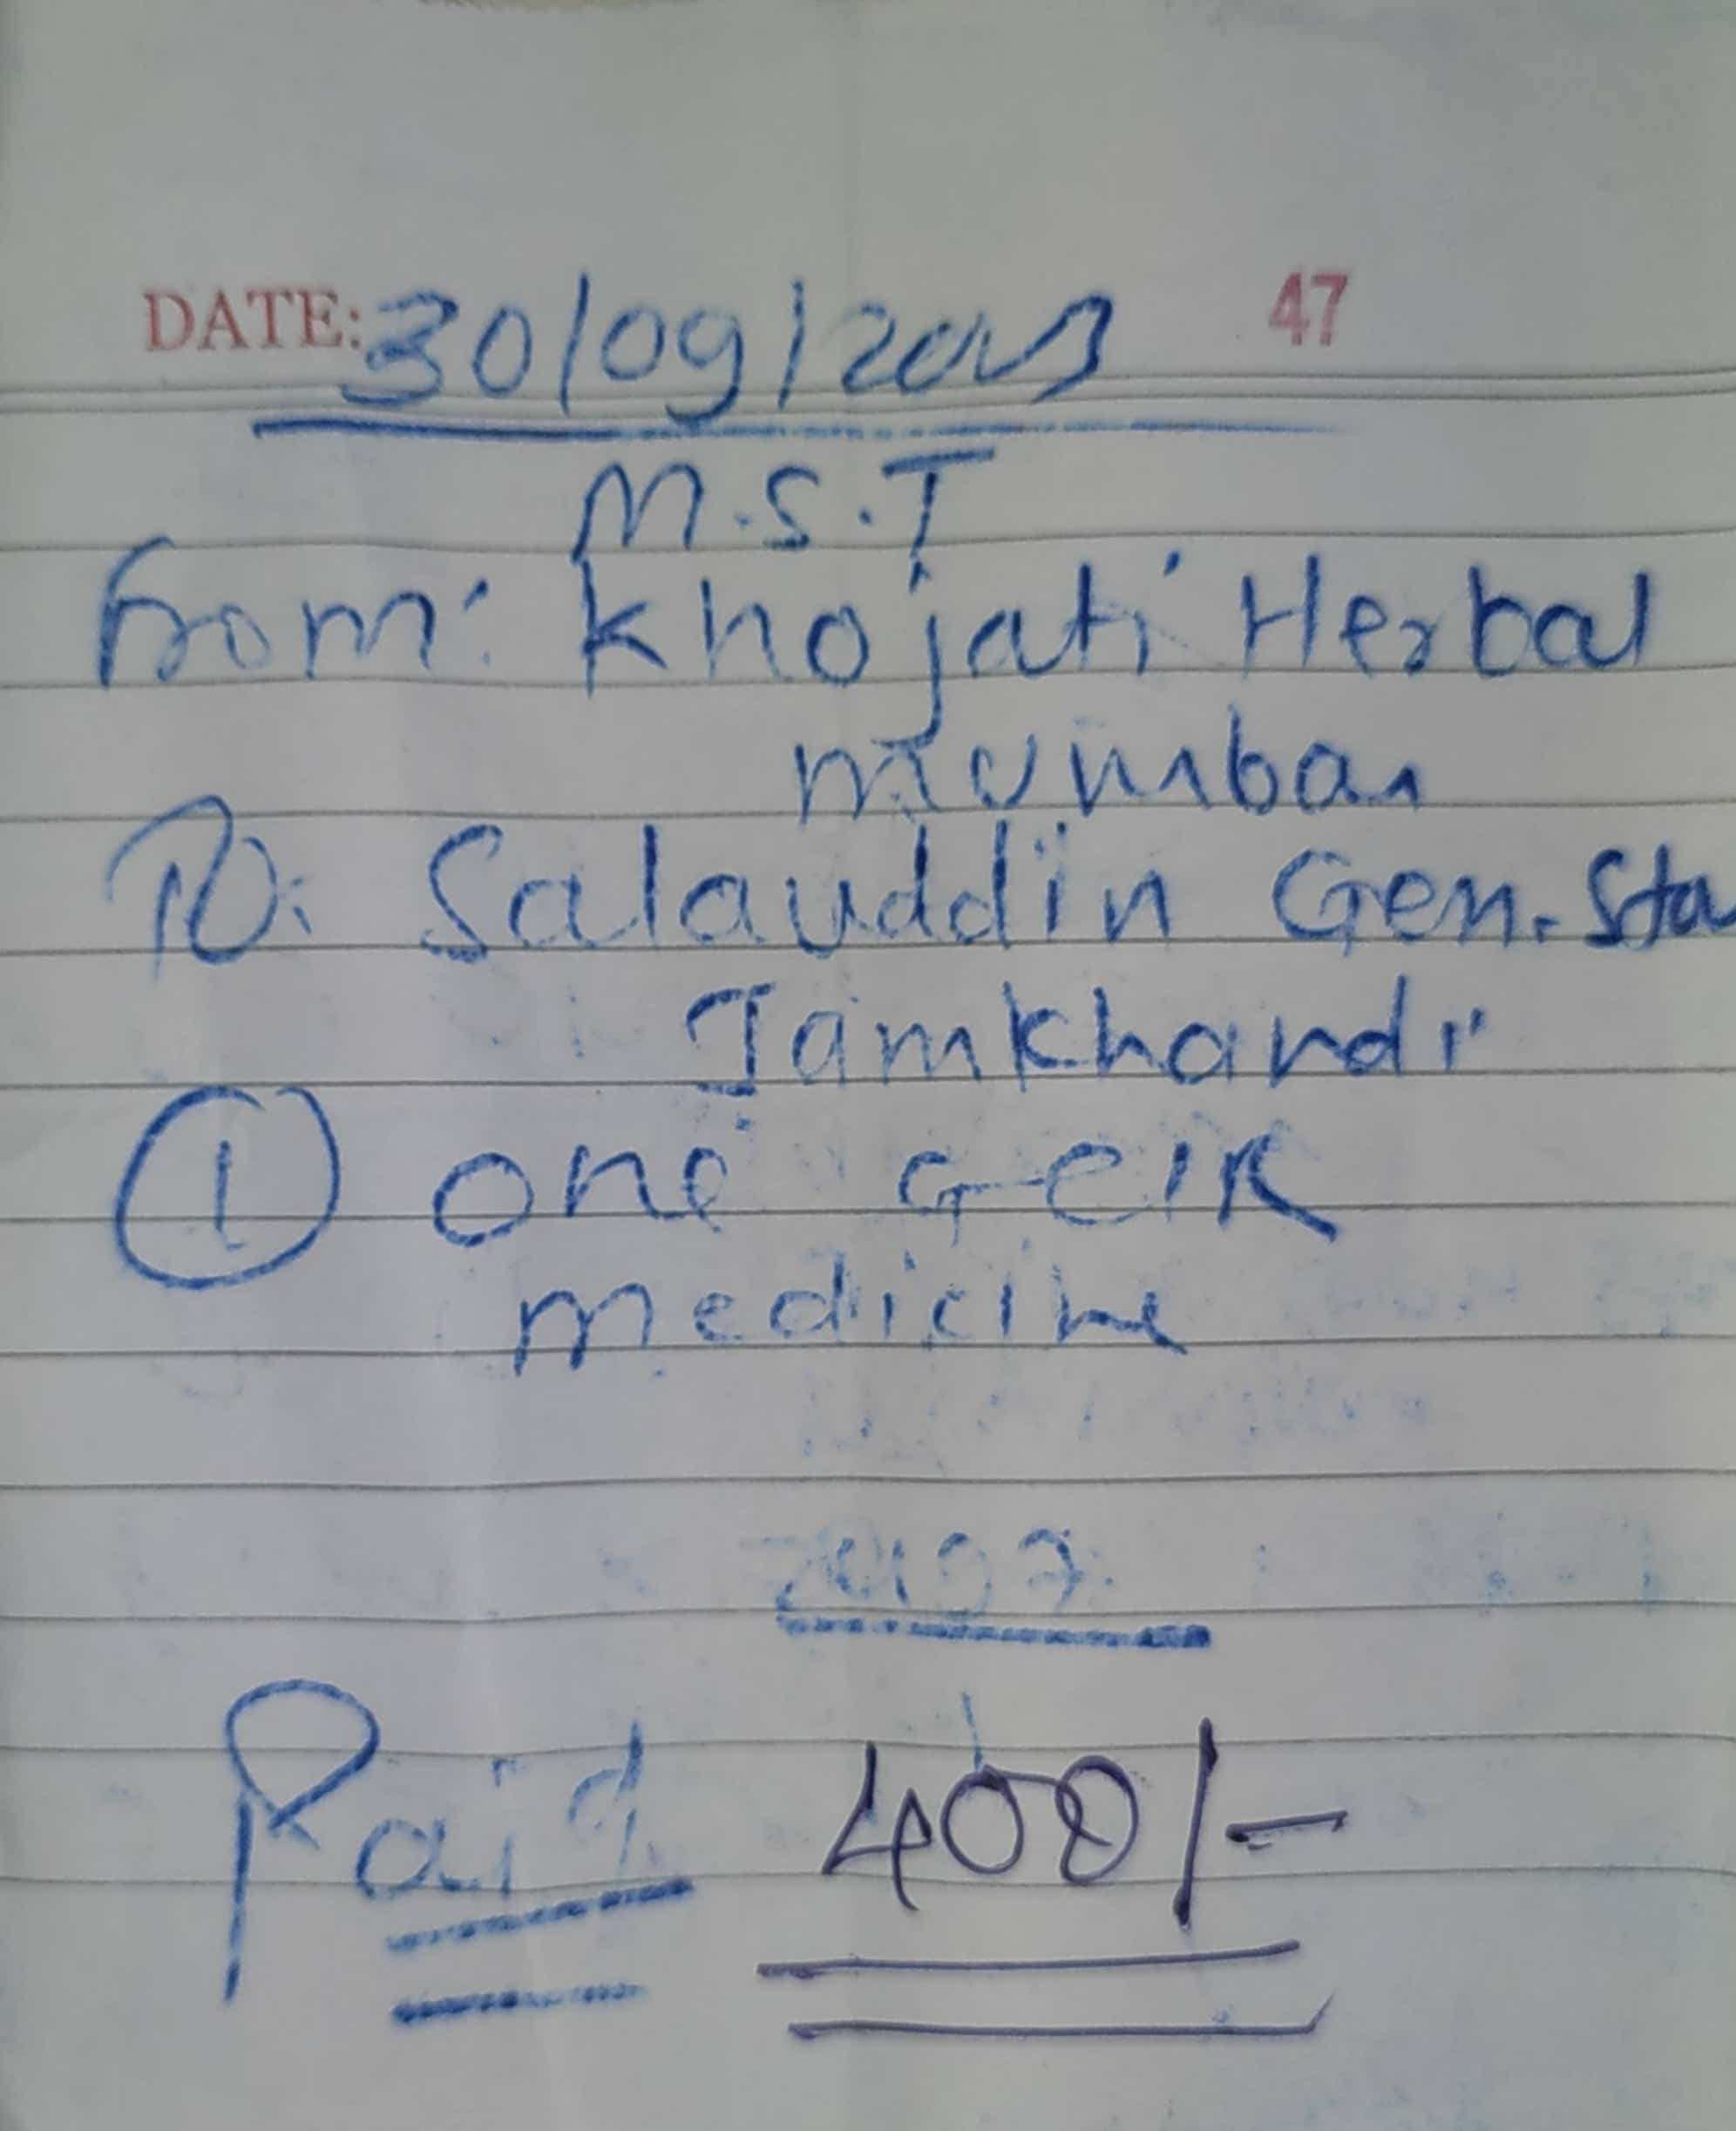 DATE: 30/09/2023 47
M.S.T
From: Khojati Herbal
mumbai
To: Salauddin Gen. Sto
Jamkhandi
① one
medicine
Paid 400/-